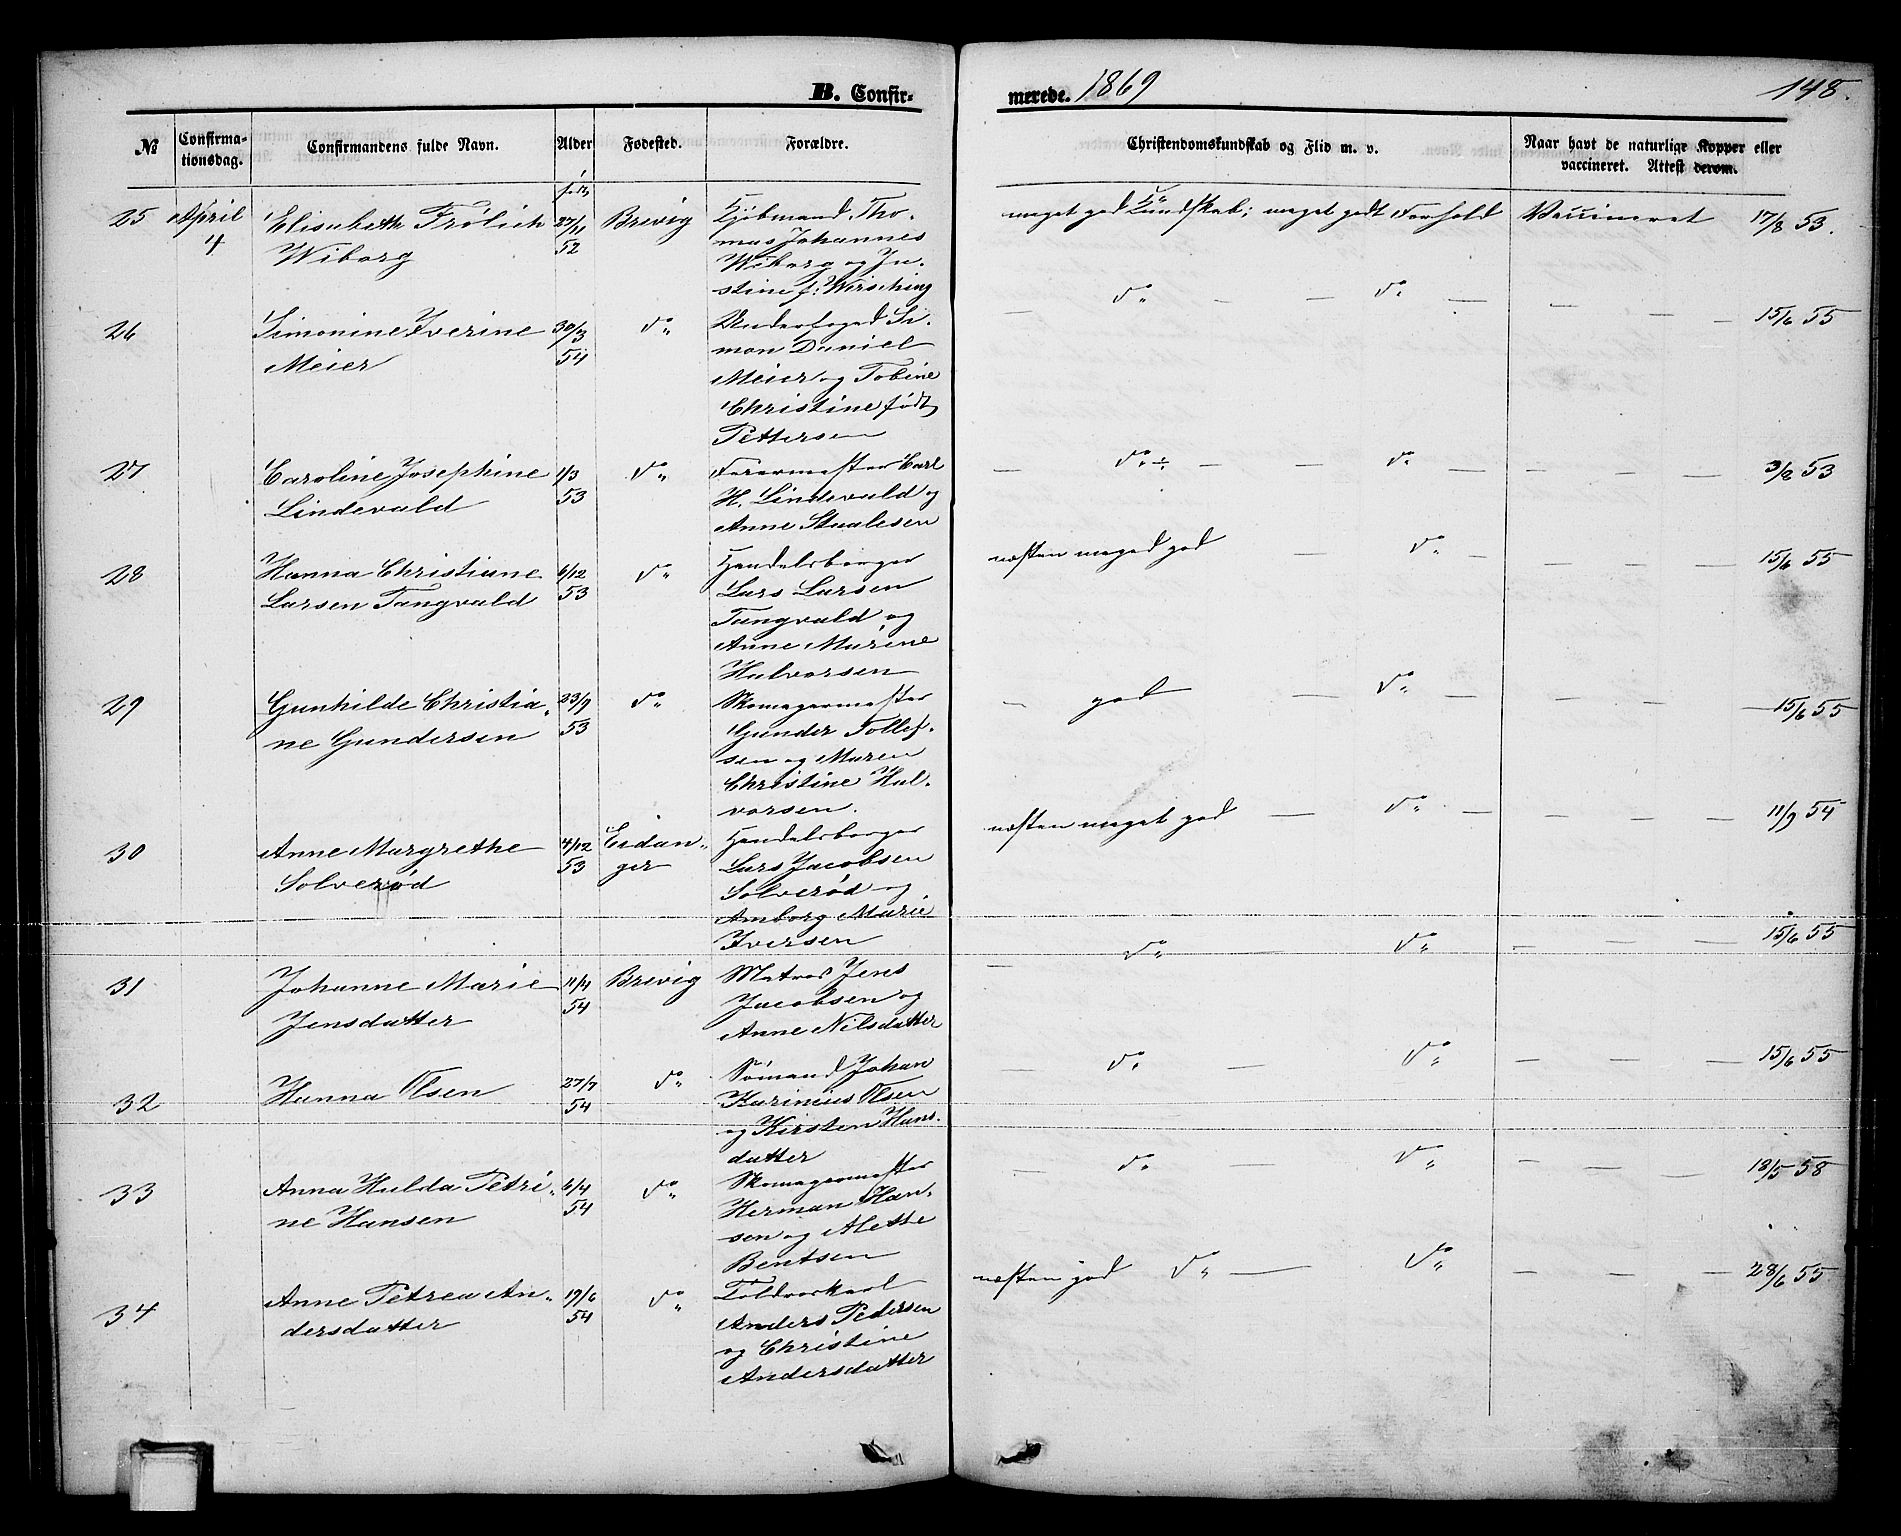 B. Confir-
merede. 1869
148.
№
Confirma-
tionsdag.
Confirmandens fulde Navn.
Alder
Fødested.
Forældre.
Christendomskundskab og Flid m. v.
Naar havt de naturlige Kopper eller
vaccineret. Attest derom.
25
April
4
Elisabeth Frölich
Wiborg
27/11
52
Brevig
Kjöbmand Tho-
mas Johannes
Wiborg og Ju-
stine f: Wirsching
meget god Kundskab; meget godt Forhold
Vaccineret
17/8 53.
26
Simonine Iverine
Meier
30/3
54
do
Underfoged Si-
mon Daniel
Meier og Tobine
Christine født
Pettersen
— do — — do — — — —
15/6 55
27
Caroline Josephine
Lindevald
1/3
53
do
Farvermester Carl
H. Lindevald og
Anne Staalesen
— do — — do — — — —
3/8 53
28
Hanna Christiane
Larsen Tangvald
6/12
53
do
Handelsborger
Lars Larsen
Tangvald og
Anne Marine
Halvorsen
næsten meget god — do — — — —
15/6 55
29
Gunhilde Christia-
ne Gundersen
23/9
53
do
Skomagermester
Gunder Tollef-
sen og Maren
Christine Hal-
vorsen.
— god — do — — — —
15/6 55
30
Anne Margrethe
Solverød
4/12
53
Eidan-
ger
Handelsborger
Lars Jacobsen
Solverød og
Amborg Marie
Iversen
næsten meget god — do — — — —
11/9 54
31
Johanne Marie
Jensdatter
11/4
54
Brevig
Matros Jens
Jacobsen og
Anne Nilsdatter
— do — do — — — —
15/6 55
32
Hanna Olsen
27/7
54
do
Sømand Johan
Karinius Olsen
og Kirsten Hans-
datter
— do — do — — — —
15/6 55
33
Anna Hulda Petri-
ne Hansen
6/4
54
do
Skomagermester
Herman Han-
sen og Alette
Bentsen
— do — do — — — —
18/5 58
34
Anne Petrea An-
dersdatter
19/6
54
do
Toldvorkarl
Anders Pedersen
og Christine
Andersdatter
næsten god do — do — — —
28/6 55